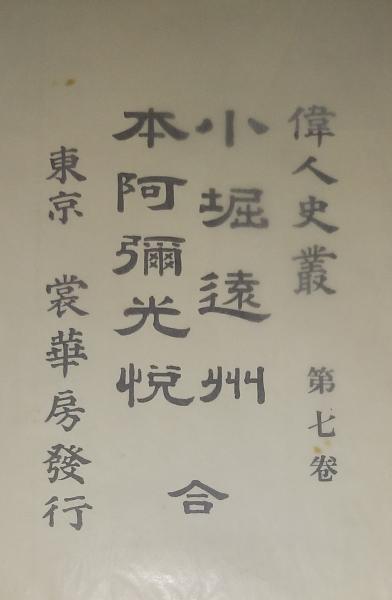 偉人史叢 第七卷
小堀遠州
本阿彌光悅
合
東京 裳華房發行